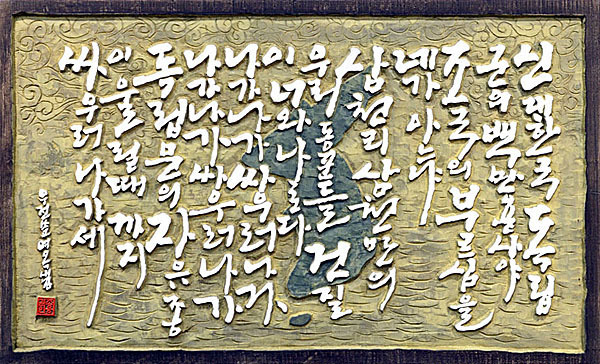 신대한국 독립
군의 백만용사야
조국의 부르심을
네가 아느냐
삼천리 삼천만의
우리 동포들 건질
이 너와 나로다
나가 나가 싸우러 나가
나가 나가 싸우러 나가
독립문의 자유종
이 울릴때 까지
싸우러 나가세